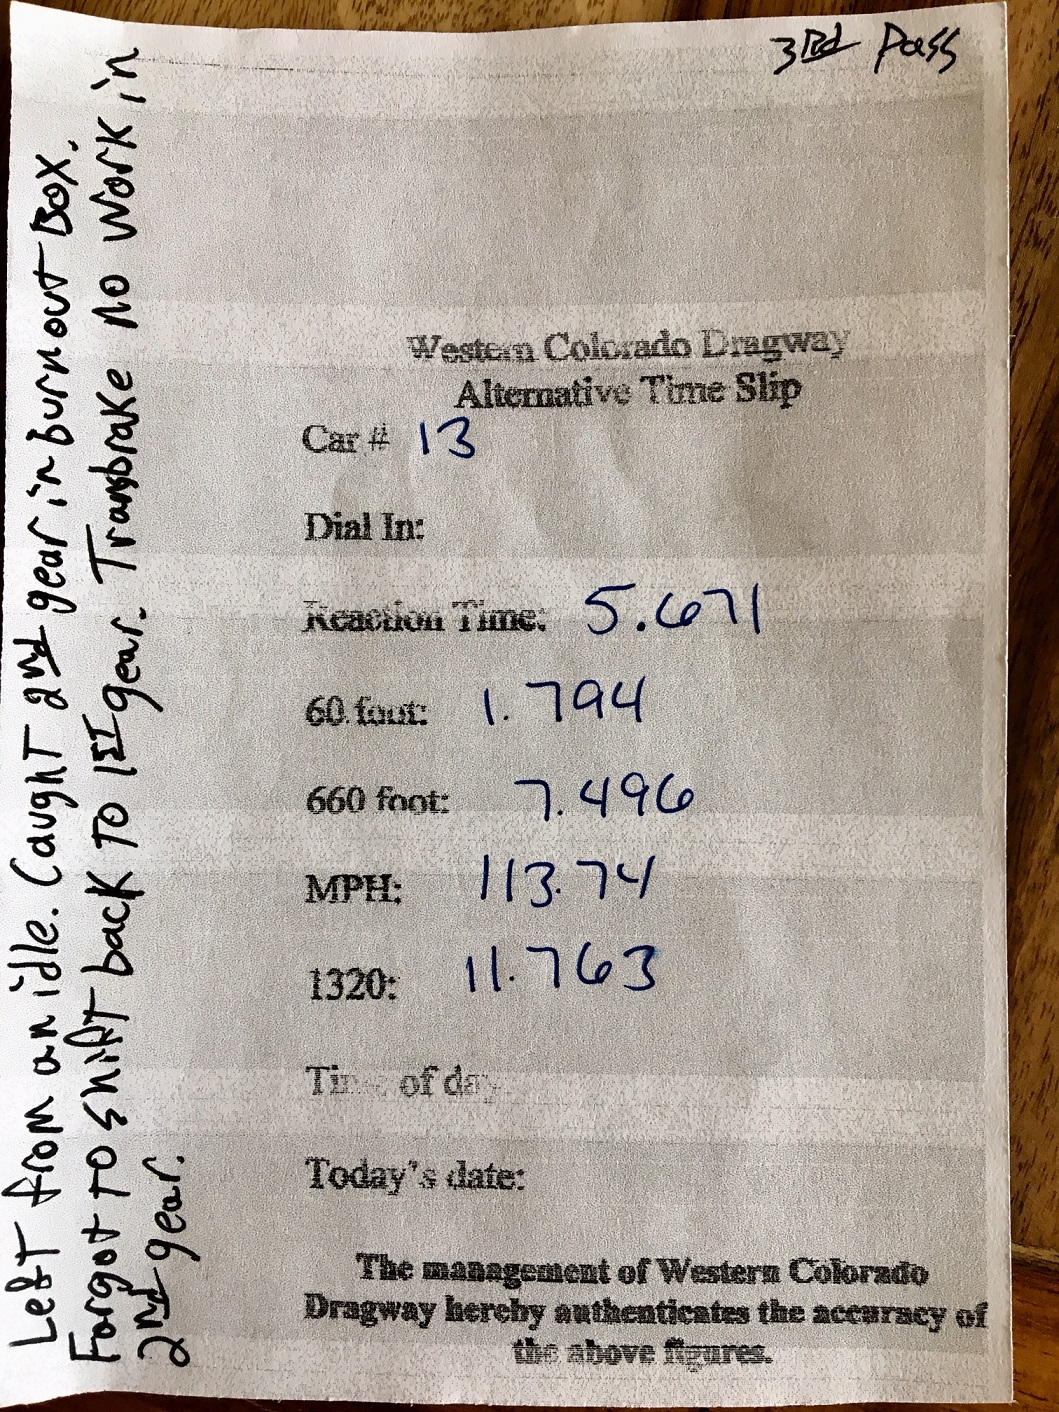 3Rd Pass
Western Colorado Dragway
Alternative Time Slip
Car # 13
Dial In:
Reaction Time: 5.671
60 foot: 1.794
660 foot: 7.496
MPH: 113.74
1320: 11.763
Time of day
Today's date:
The management of Western Colorado
Dragway hereby authenticates the accuracy of
the above figures.
Left from an idle. Caught 2nd gear in burnout Box.
Forgot to shift back to 1ST gear. Transbrake no work in
2nd gear.